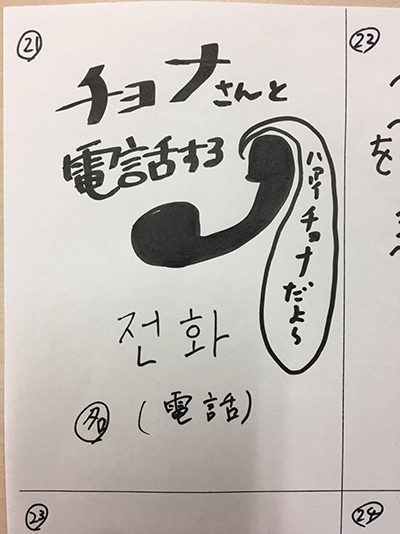 ㉑
チョナさんと
電話する
ハァイチョナだよ～
전화
名 (電話)
㉒
を
㉓
㉔